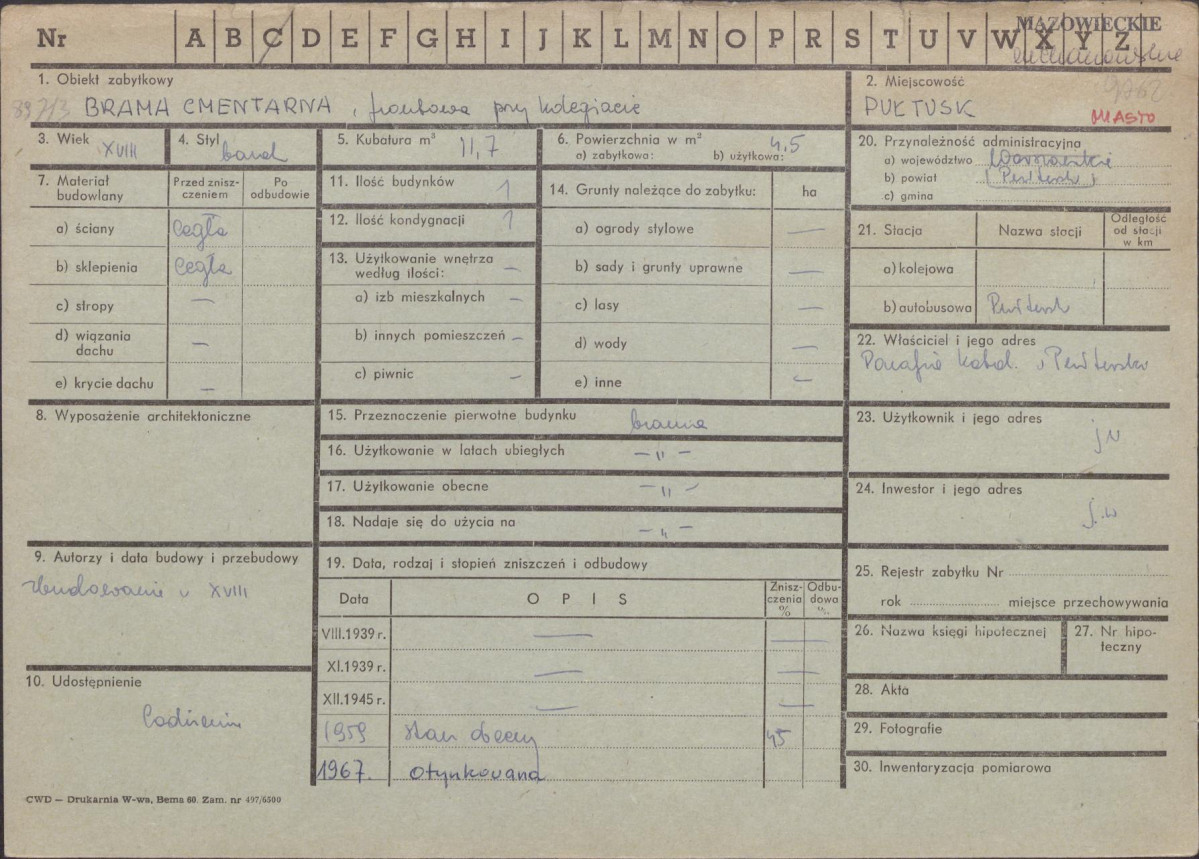 MAZOWIECKIE
Nr A B C D E F G H I J K L M N O P R S T U V W X Y Z
ciechanowskie
1. Obiekt zabytkowy
BRAMA CMENTARNA, frontowa przy kolegiacie
2. Miejscowość
PUŁTUSK
MIASTO
3. Wiek XVIII
4. Styl barok
5. Kubatura m³ 11,7
6. Powierzchnia w m² 4,5
a) zabytkowa: b) użytkowa:
7. Materiał budowlany
Przed zniszczeniem
Po odbudowie
a) ściany cegła
b) sklepienia cegła
c) stropy —
d) wiązania dachu —
e) krycie dachu —
8. Wyposażenie architektoniczne
9. Autorzy i data budowy i przebudowy
Zbudowanie w XVIII
10. Udostępnienie
Codziennie
11. Ilość budynków 1
12. Ilość kondygnacji 1
13. Użytkowanie wnętrza według ilości: —
a) izb mieszkalnych —
b) innych pomieszczeń —
c) piwnic —
14. Grunty należące do zabytku: ha
a) ogrody stylowe —
b) sady i grunty uprawne —
c) lasy —
d) wody —
e) inne —
15. Przeznaczenie pierwotne budynku brama
16. Użytkowanie w latach ubiegłych — " —
17. Użytkowanie obecne — " —
18. Nadaje się do użycia na — " —
19. Data, rodzaj i stopień zniszczeń i odbudowy
Data OPIS Zniszczenia % Odbudowa %
VIII.1939 r. — —
XI.1939 r. — —
XII.1945 r. — —
1959 stan obecny 45
1967. otynkowana
20. Przynależność administracyjna
a) województwo Warszawskie
b) powiat Pułtusk
c) gmina
21. Stacja Nazwa stacji Odległość od stacji w km
a) kolejowa
b) autobusowa Pułtusk
22. Właściciel i jego adres
Parafia katol. w Pułtusku
23. Użytkownik i jego adres
jw
24. Inwestor i jego adres
j.w
25. Rejestr zabytku Nr
rok miejsce przechowywania
26. Nazwa księgi hipotecznej
27. Nr hipoteczny
28. Akta
29. Fotografie
30. Inwentaryzacja pomiarowa
CWD — Drukarnia W-wa, Bema 60. Zam. nr 497/6500